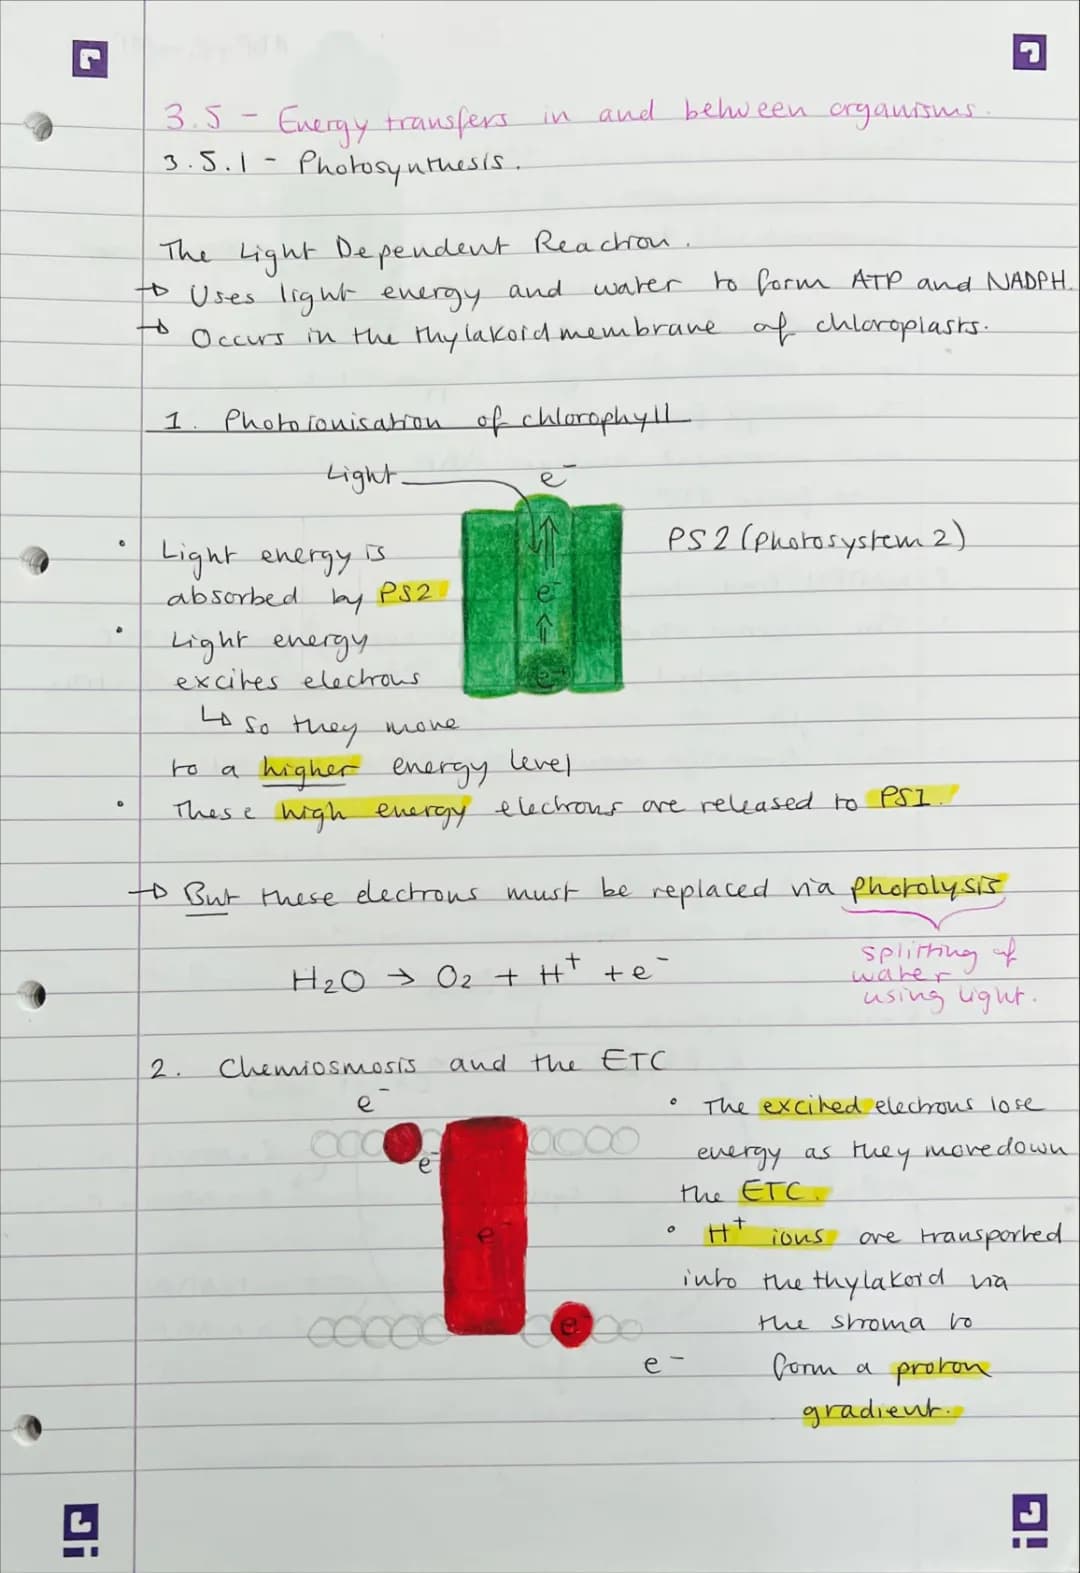 3.5 - Energy transfers in and between organisms.
3.5.1 - Photosynthesis.
The Light Dependent Reaction.
→ Uses light energy and water to form ATP and NADPH.
→ Occurs in the thylakoid membrane of chloroplasts.
1. Photoionisation of chlorophyll
Light
e⁻
PS2 (photosystem 2)
• Light energy is
absorbed by PS2
• Light energy
excites electrons
↳ so they move
to a higher energy level
• These high energy electrons are released to PS1.
e⁻
e⁻
→ But these electrons must be replaced via photolysis
splitting of
water
using light.
H₂O → O₂ + H⁺ + e⁻
2. Chemiosmosis and the ETC
e⁻
e⁻
e⁻
e⁻
e⁻
• The excited electrons lose
energy as they move down
the ETC.
• H⁺ ions are transported
into the thylakoid via
the stroma to
form a proton
gradient.